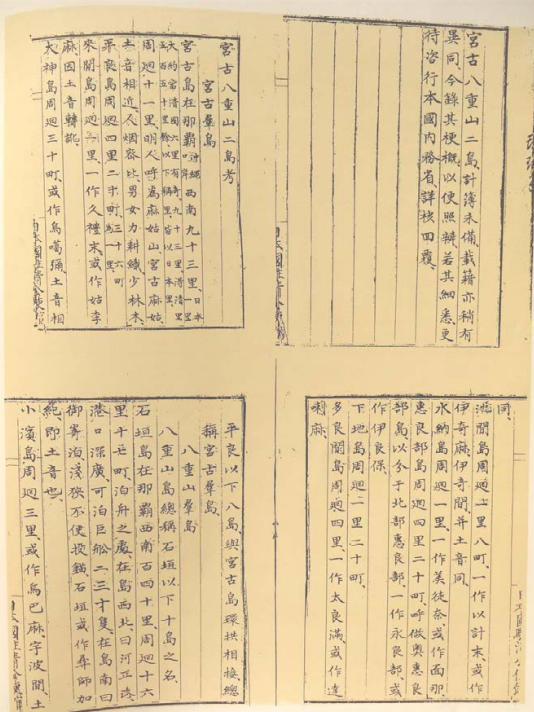 宮古八重山二島、計簿未備、載籍亦稍有
異同、今錄其梗概、以便照辦、若其細悉、更
待咨行本國內務省、詳核回覆、
宮古八重山二島考
宮古羣島
宮古島在那霸西南九十三里、日本一里
大約當清國六里有奇、九十三里清里
五百五十里餘、以下稱里皆以日本里、
周迴十一里、明人呼爲麻姑山、宮古麻姑、
土音相近、人烟密比、男女力耕織、少林木、
周迴四里二十町、三十六町爲一里、
來間島周迴一里、一作久禮末、或作姑李
麻、因土音轉訛、
大神島周迴三十町、或作烏噶彌、土音相
同、
池間島周迴二里八町、一作以計末、或作
伊奇麻、伊奇間、并土音同、
水納島周迴一里、一作美徒奈、或作面那、
惠良部島周迴四里二十町、呼做奧惠良
部島、以分于北部惠良部、一作永良部、或
作伊良保、
下地島周迴二里二十町、
多良間島周迴四里、一作太良滿、或作達
喇麻、
平良以下八島、與宮古島環拱相接、總
稱宮古羣島、
八重山羣島
八重山島總稱石垣以下十島之名、
石垣島在那霸西南百四十里、周迴十六
里十七町、泊舟之處、在島西北、曰河平港、
港口深廣、可泊巨舩二三才隻、在島南曰
御寄泊、淺狹不便投錨、石垣或作尋師加
紀、即土音也、
小濱島周迴三里、或作烏巴麻、字波間、土